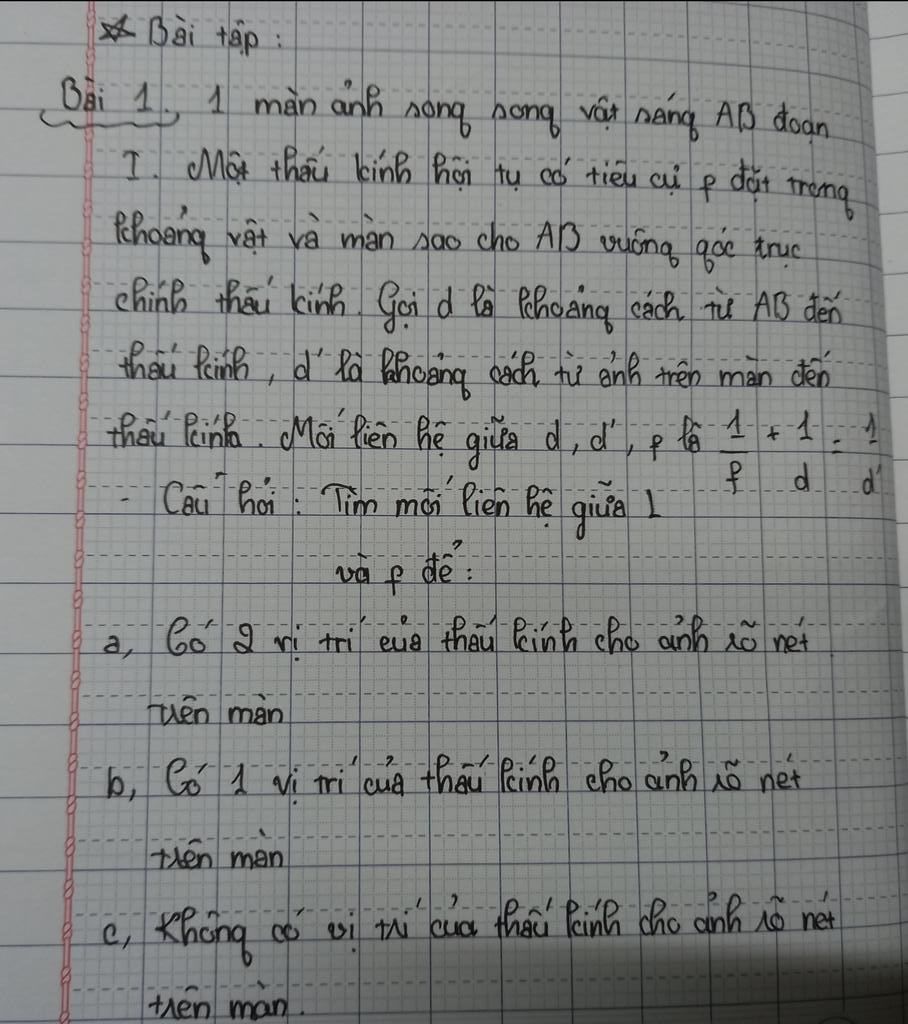 * Bài tập :
Bài 1. 1 màn ảnh song song vật sáng AB đoạn
I. Một thấu kính hội tụ có tiêu cự f đặt trong
khoảng vật và màn sao cho AB vuông góc trục
chính thấu kính. Gọi d là khoảng cách từ AB đến
thấu kính, d' là khoảng cách từ ảnh trên màn đến
thấu kính. Mối liên hệ giữa d, d', f là 1/f + 1/d = 1/d'
- Câu hỏi : Tìm mối liên hệ giữa L
và f để :
a, Có 2 vị trí của thấu kính cho ảnh rõ nét
trên màn
b, Có 1 vị trí của thấu kính cho ảnh rõ nét
trên màn
c, Không có vị trí của thấu kính cho ảnh rõ nét
trên màn.